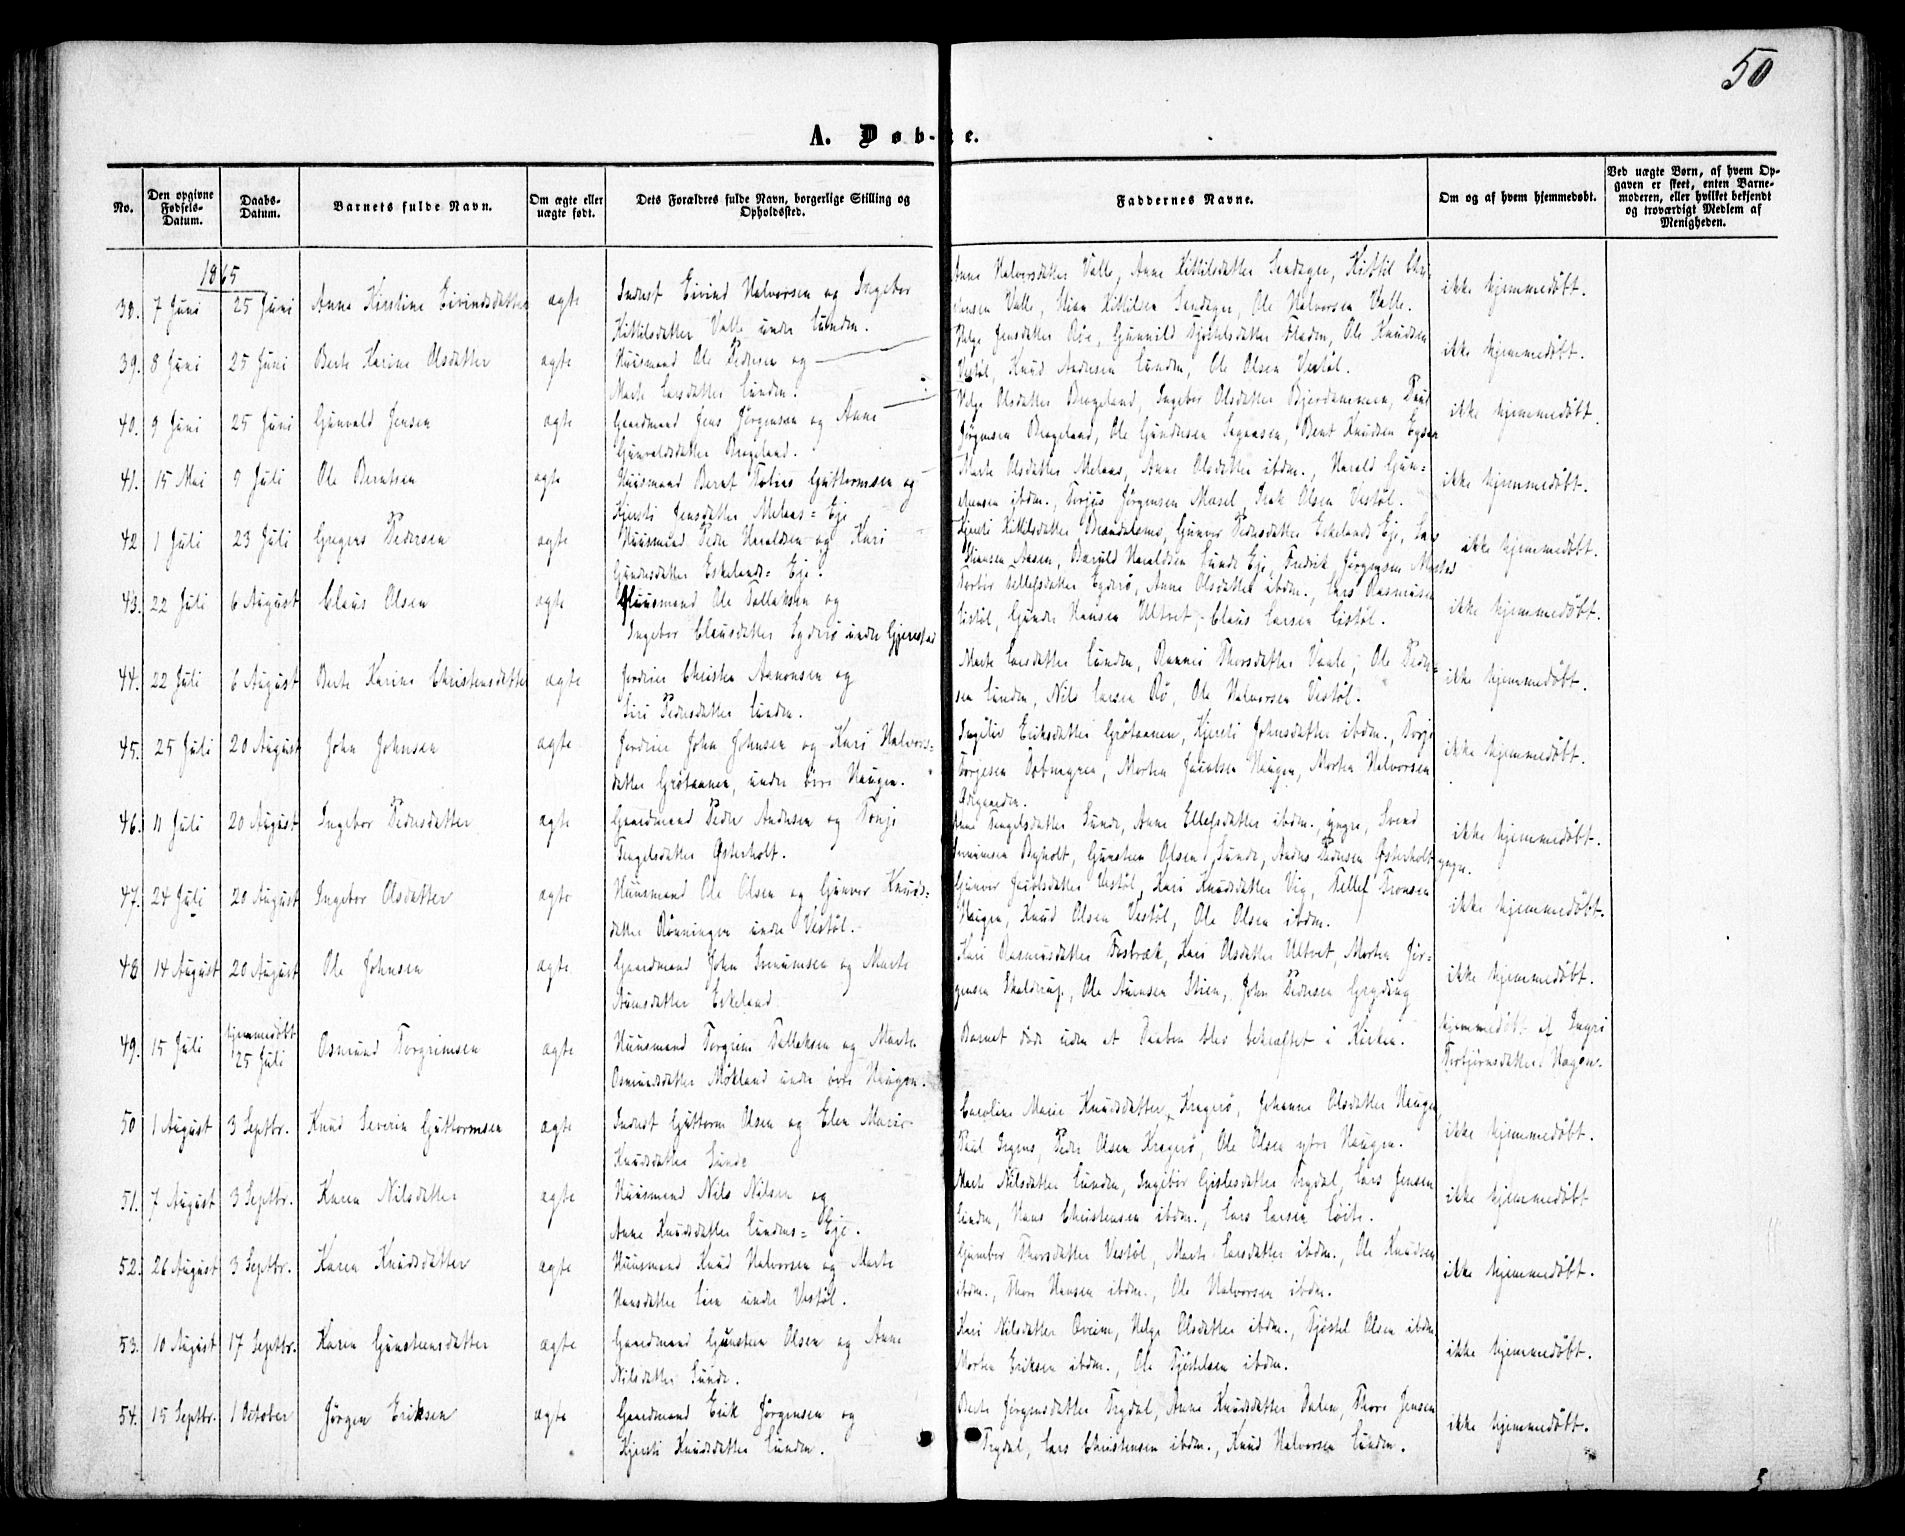 50
A. Døb-te.
No. Den opgivne Fødsels-Datum. Daabs-Datum. Barnets fulde Navn. Om ægte eller uægte født. Dets Forældres fulde Navn, borgerlige Stilling og Opholdssted. Faddernes Navne. Om og af hvem hjemmedøbt. Ved uægte Børn, af hvem Opgaven er skeet, enten Barnemoderen, eller hvilket bekjendt og troværdigt Medlem af Menigheden.
1865
38. 7 Juni 25 Juni Anne Kirstine Eivindsdatter ægte Inderst Eivind Halvorsen og Ingebor
Kittilsdatter Valle under Lunden.
Anne Halvorsdatter Valle, Anne Kittilsdatter Sendager, Kittil
Valle, Kittilsen Sendager, Ole Halvorsen Valle.
ikke hjemmedøbt.
39. 8 Juni 25 Juni Berte Karine Olsdatter ægte Huusmand Ole Pedersen og
Marte Larsdatter Lunden.
Helge Jensdatter Røe, Gunnild Tjøstelsdatter Fladen, Ole Knudsen
Vestøl, Knud Andersen Lunden, Ole Olsen Vestøl.
ikke hjemmedøbt.
40. 9 Juni 25 Juni Gunvald Jensen ægte Gaardmand Jens Jørgensen og Anne
Gunvaldsdatter Brageland.
Helge Olsdatter Brageland, Ingebor Olsdatter Bjordammen,
Jørgensen Brageland, Ole Gundersen, Bent Knudsen
ikke hjemmedøbt.
41. 15 Mai 9 Juli Ole Berntsen ægte Huusmand Bernt Tobias Guttormsen og
Kjersti Jensdatter Melaas= Eje
Marte Olsdatter Melaas, Anne Olsdatter ibdm., Harald Gun=
dersen ibdm., Torjus Jørgensen Mosel, Isak Olsen Vestøl.
ikke hjemmedøbt.
42 1 Juli 23 Juli Gregers Pedersen ægte Huusmand Peder Haraldsen og Kari
Gundersdatter Eskelands= Eje.
Kjersti Kittilsdatter Brandalsmo, Gunvor Pedersdatter Eskelands Eje, Lars
Aasen, Harald Haraldsen Sunde Eje, Fredrik Jørgensen
ikke hjemmedøbt.
43. 22 Juli 6 August Claus Olsen ægte Huusmand Ole Tallaksen og
Ingebor Clausdatter Egderø under Gjerestad
Tellefsdatter Egderø, Anne Olsdatter ibdm., Lars Rasmusen
Listøl, Gunder Hansen Ultvet, Claus Larsen Listøl.
ikke hjemmedøbt.
44. 22 Juli 6 August Berte Karine Christensdatter ægte Jordeier Christen Aanonsen og
Siri Pedersdatter Lunden.
Marte Larsdatter Lunden, Thorsdatter Vaale, Ole Peder=
sen Lunden, Nils Larsen Rø, Ole Halvorsen Vestøl.
ikke hjemmedøbt.
45. 25 Juli 20 August John Johnsen ægte Jordeier John Johnsen og Kari Halvors=
datter Grøtaanen, under øvre Haugen.
Eriksdatter Grøtaanen, Kjersti Johnsdatter ibdm.,
Morten Jacobsen Haugen, Morten Halvorsen
ikke hjemmedøbt.
46. 11 Juli 20 August Ingebor Pedersdatter ægte Gaardmand Peder Andersen og Tonje
Tengelsdatter Østerholt.
Tengelsdatter Sunde, Anne Ellefsdatter ibdm., yngre, Svend
Byholt, Gunsteen Olsen Sunde, Anders Pedersen Østerholt yngre.
ikke hjemmedøbt.
47. 24 Juli 20 August Ingebor Olsdatter ægte Huusmand Ole Olsen og Gunvor Knuds=
datter Rønningen under Vestøl.
Gunvor Jacobsdatter Vestøl, Kari Knudsdatter Vig, Tellef Tronsen
Haugen, Knud Olsen Vestøl, Ole Olsen ibdm.
ikke hjemmedøbt.
48 14 August 20 August Ole Johnsen ægte Gaardmand John og Marte
Eskeland
Kari Rasmusdatter Fosbræk, Kari Olsdatter Ultvet, Morten Jør=
gensen, Ole Stien, John Pedersen Gryting
ikke hjemmedøbt.
49. 15 Juli hjemmedøbt 25 Juli Osmund Torgrimsen ægte Huusmand Torgrim Tallaksen og Marte
Osmundsdatter Mokland under øvre Haugen.
Barnet døde uden at Daaben blev bekræftet i Kirken.
hjemmedøbt af Ingri
Torbjørnsdatter Hagen.
50 1 August 3 Septbr. Knud Severin Guttormsen ægte Inderst Guttorm Olsen og Elen Marie
Knudsdatter Sunde
Caroline Marie Knudsdatter Kragerø, Johanne Olsdatter Haugen
Paul, Peder Olsen Kragerø, Ole Olsen ytre Haugen.
ikke hjemmedøbt.
51. 7 August 3 Septbr. Karen Nilsdatter ægte Huusmand Nils Nilsen og
Anne Knudsdatter Lundens= Eje.
Marte Nilsdatter Lunden, Ingebor Gislesdatter Trydal, Lars Jensen
Lunden, Hans Christensen ibdm., Lars Larsen Løite.
ikke hjemmedøbt
52. 26 August 3 Septbr. Karen Knudsdatter ægte Huusmand Knud Halvorsen og Marte
Hansdatter Lien under Vestøl.
Gumbor Thorsdatter Vestøl, Marte Larsdatter ibdm., Ole Knudsen
ibdm., Thor Hansen ibdm., Ole Halvorsen ibdm.
ikke hjemmedøbt.
53. 10 August 17 Septbr. Karen Gunsteensdatter ægte Gaardmand Gunsteen Olsen og Anne
Nilsdatter Sunde.
Kari Nilsdatter Qveim, Helge Olsdatter ibdm., Tjøstel Olsen ibdm.
Morten Eriksen ibdm., Ole Tjøstelsen ibdm.
ikke hjemmedøbt.
54. 15 Septbr. 1 October Jørgen Eriksen ægte Gaardmand Erik Jørgensen og
Kjersti Knudsdatter Lunden.
Berte Jørgensdatter Trydal, Anne Knudsdatter Dalen, Thore Jensen
Trydal, Lars Christensen ibdm., Knud Halvorsen Lunden.
ikke hjemmedøbt.